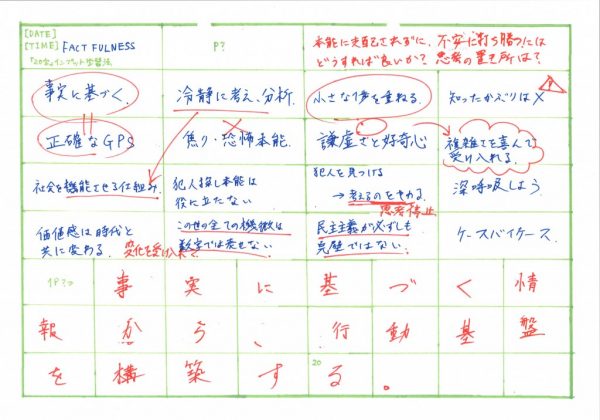 [DATE]
[TIME] FACT FULNESS
『20字』インプット学習法
P?
本能に支配されずに、不安に打ち勝つには
どうすれば良いか? 思考の置き所は?
事実に基づく。
冷静に考え、分析。
小さな1歩を重ねる。
知ったかぶりは×
正確なGPS
焦り・恐怖本能。
謙虚さと好奇心
複雑さを喜んで
受け入れる。
社会を機能させる仕組み。
犯人探し本能は
役に立たない
犯人を見つける
→考えるのをやめる。
思考停止
深呼吸しよう
価値感は時代と
共に変わる。
変化を受け入れて
この世の全ての機微は
数字では表せない。
民主主義が必ずしも
完璧ではない。
ケースバイケース。
1P?→
事実に基づく情
報から、行動基盤
を構築する。
20